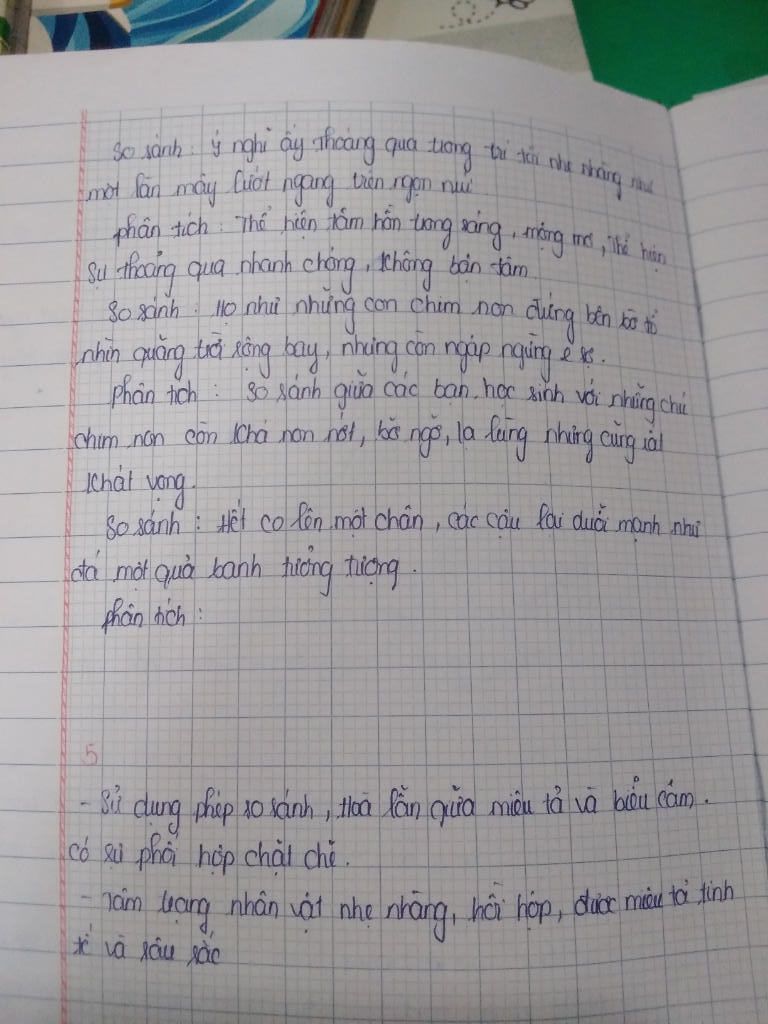 So sánh : ý nghĩ ấy thoáng qua trong trí tôi nhẹ nhàng như
một làn mây lướt ngang trên ngọn núi
phân tích : Thể hiện tâm hồn trong sáng, mộng mơ, Thể hiện
sự thoáng qua nhanh chóng, không bận tâm
So sánh : Họ như những con chim non đứng bên bờ tổ
nhìn quãng trời rộng bay, nhưng còn ngập ngừng e sợ.
Phân tích : So sánh giữa các bạn học sinh với những chú
chim non còn khá non nớt, bỡ ngỡ, lạ lùng nhưng cũng rất
khát vọng.
So sánh : Hết co lên một chân, các cậu lại duỗi mạnh như
đá một quả banh tưởng tượng.
phân tích :
5
- Sử dụng phép so sánh, Hoà lẫn giữa miêu tả và biểu cảm.
có sự phối hợp chặt chẽ.
- Tâm trạng nhân vật nhẹ nhàng, hồi hộp, được miêu tả tinh
tế và sâu sắc